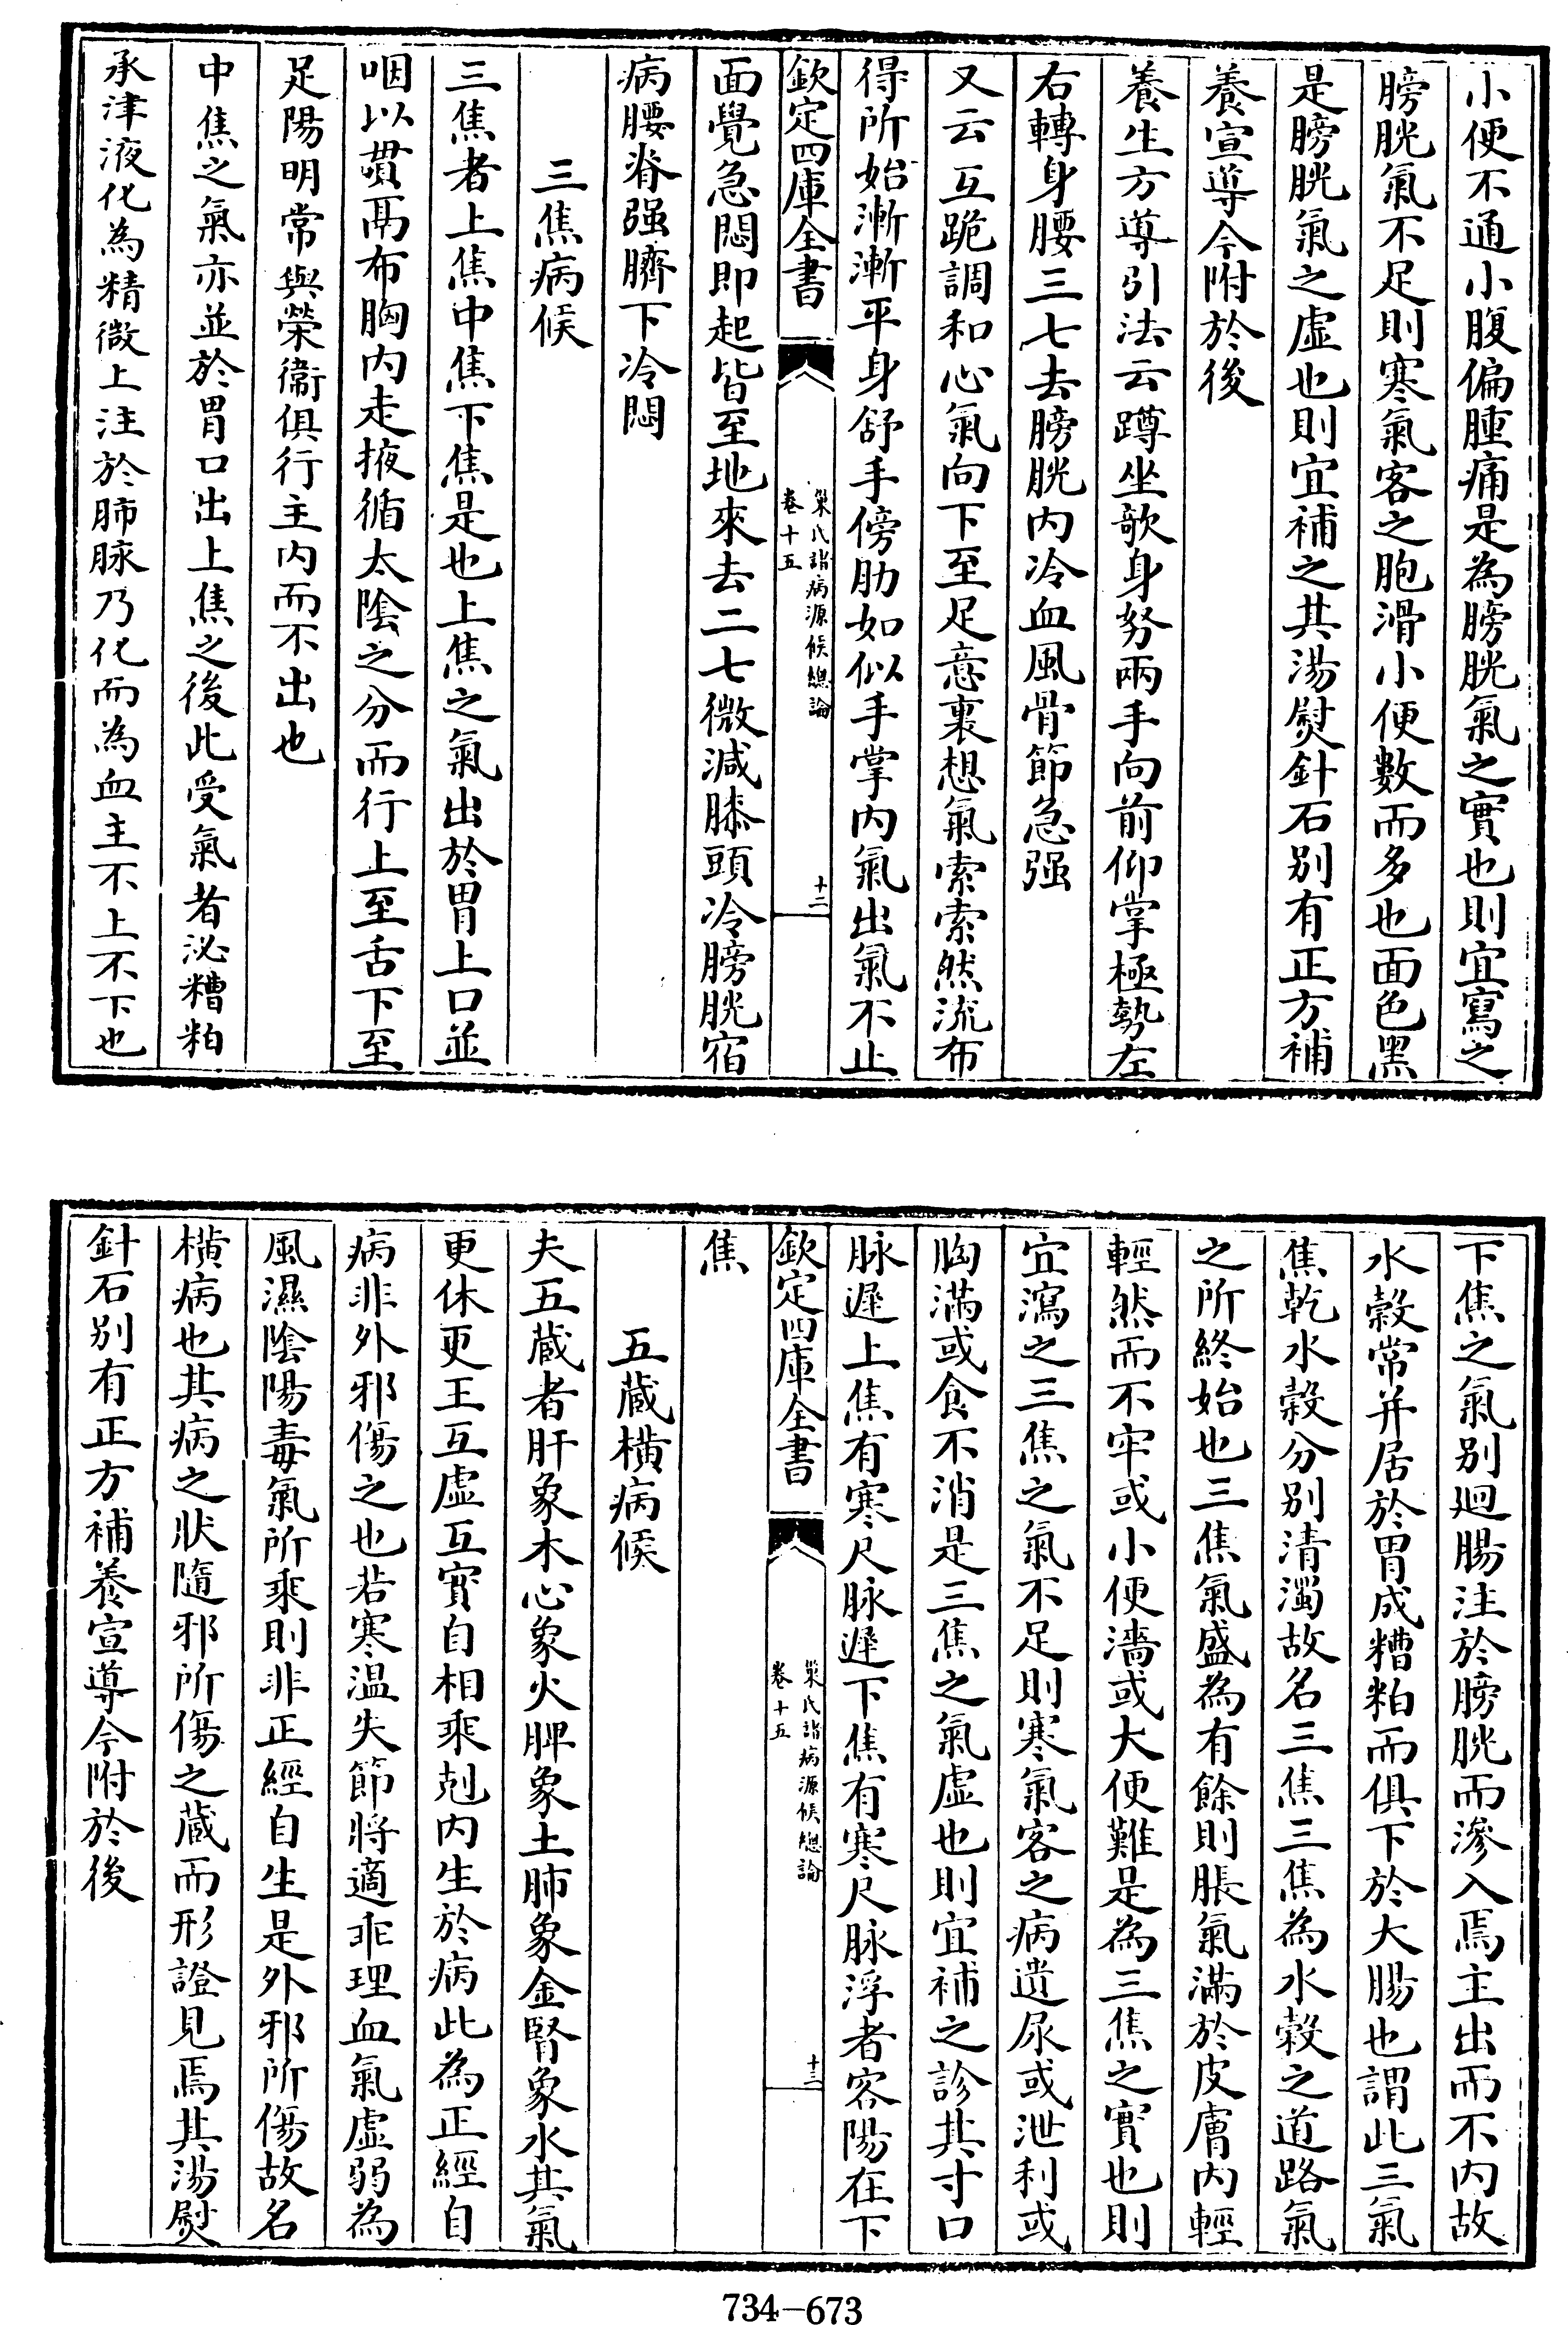 小便不通小腹偏腫痛是為膀胱氣之實也則宜寫之
膀胱氣不足則寒氣客之胞滑小便數而多也面色黑
是膀胱氣之虛也則宜補之其湯熨針石别有正方補
養宣導今附於後
養生方導引法云蹲坐欹身努兩手向前仰掌極勢左
右轉身腰三七去膀胱内冷血風骨節急强
又云互跪調和心氣向下至足意裏想氣索索然流布
得所始漸漸平身舒手傍肋如似手掌内氣出氣不止
欽定四庫全書
巢氏諸病源候總論
卷十五
十二
面覺急悶即起皆至地來去二七微減膝頭冷膀胱宿
病腰脊强臍下冷悶
三焦病候
三焦者上焦中焦下焦是也上焦之氣出於胃上口並
咽以貫鬲布胸内走掖循太陰之分而行上至舌下至
足陽明常與榮衞俱行主内而不出也
中焦之氣亦並於胃口出上焦之後此受氣者泌糟粕
承津液化為精微上注於肺脉乃化而為血主不上不下也
下焦之氣别廻腸注於膀胱而滲入焉主出而不内故
水穀常并居於胃成糟粕而俱下於大腸也謂此三氣
焦乾水穀分别清濁故名三焦三焦為水穀之道路氣
之所終始也三焦氣盛為有餘則脹氣滿於皮膚内輕
輕然而不牢或小便濇或大便難是為三焦之實也則
宜瀉之三焦之氣不足則寒氣客之病遺尿或泄利或
胸滿或食不消是三焦之氣虛也則宜補之診其寸口
脉遲上焦有寒尺脉遲下焦有寒尺脉浮者客陽在下
欽定四庫全書
巢氏諸病源候總論
卷十五
十三
焦
五蔵橫病候
夫五蔵者肝象木心象火脾象土肺象金腎象水其氣
更休更王互虛互實自相乘剋内生於病此為正經自
病非外邪傷之也若寒温失節將適乖理血氣虛弱為
風濕陰陽毒氣所乘則非正經自生是外邪所傷故名
橫病也其病之狀隨邪所傷之蔵而形證見焉其湯熨
針石别有正方補養宣導今附於後
734-673